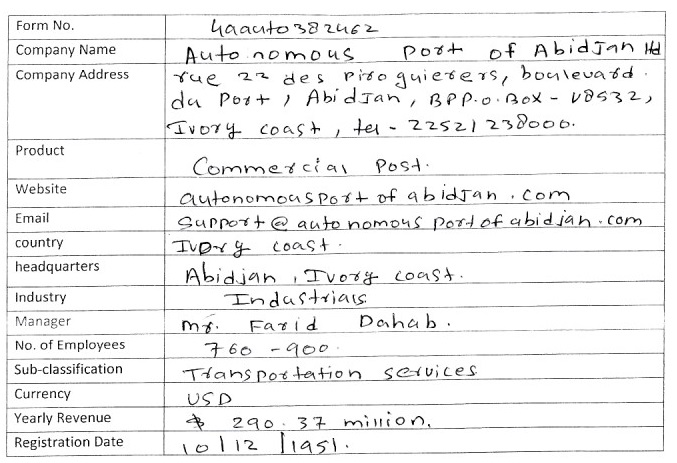 Form No. 4aauto382462
Company Name Autonomous Port of Abidjan Ltd
Company Address rue 22 des piroguierers, boulevard.
du Port, Abidjan, BPP.O.BOX - V8532,
Ivory coast, tel - 22521238000.
Product Commercial Post.
Website autonomousportofabidjan.com
Email support@autonomousportofabidjan.com
country Ivory coast.
headquarters Abidjan, Ivory coast.
Industry Industrials
Manager Mr. Farid Dahab.
No. of Employees 760 - 900.
Sub-classification Transportation services
Currency USD
Yearly Revenue $ 290.37 million.
Registration Date 10/12/1951.